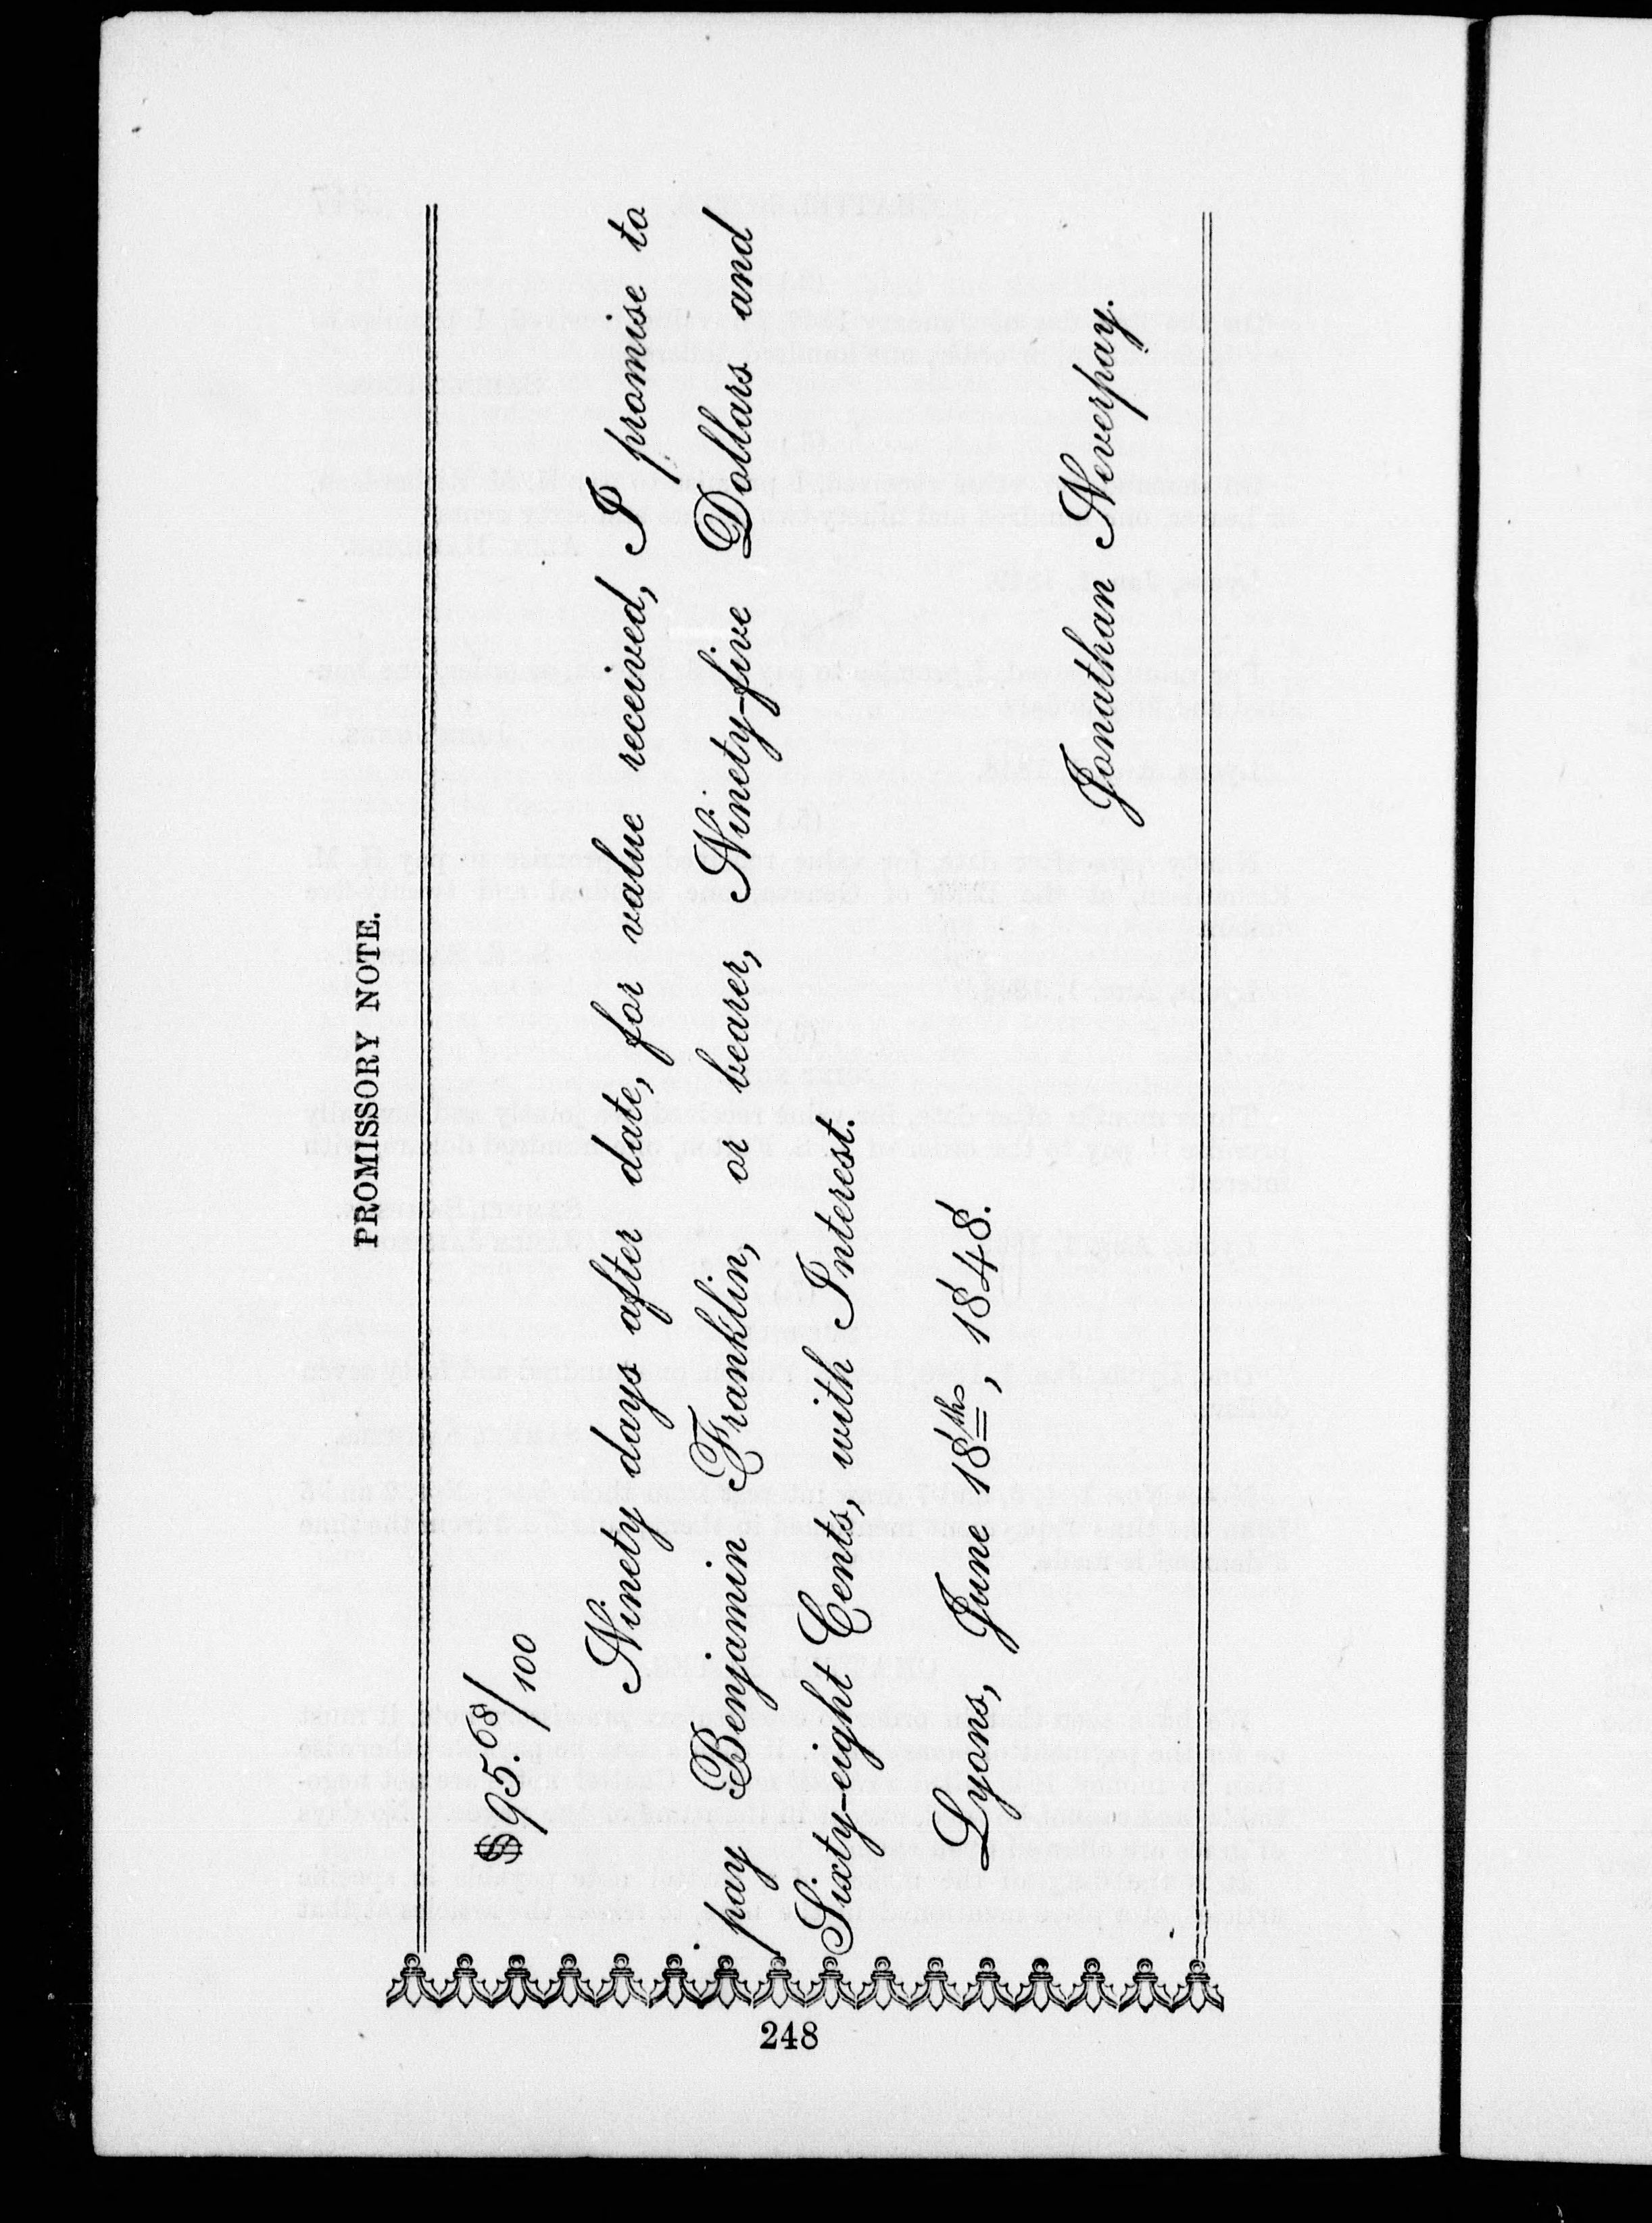 PROMISSORY NOTE.
$95.68/100
Ninety days after date, for value received, I promise to
pay Benjamin Franklin, or bearer, Ninety-five Dollars and
Sixty-eight Cents, with Interest.
Lyons, June 18th, 1848.
Jonathan Neverpay.
248